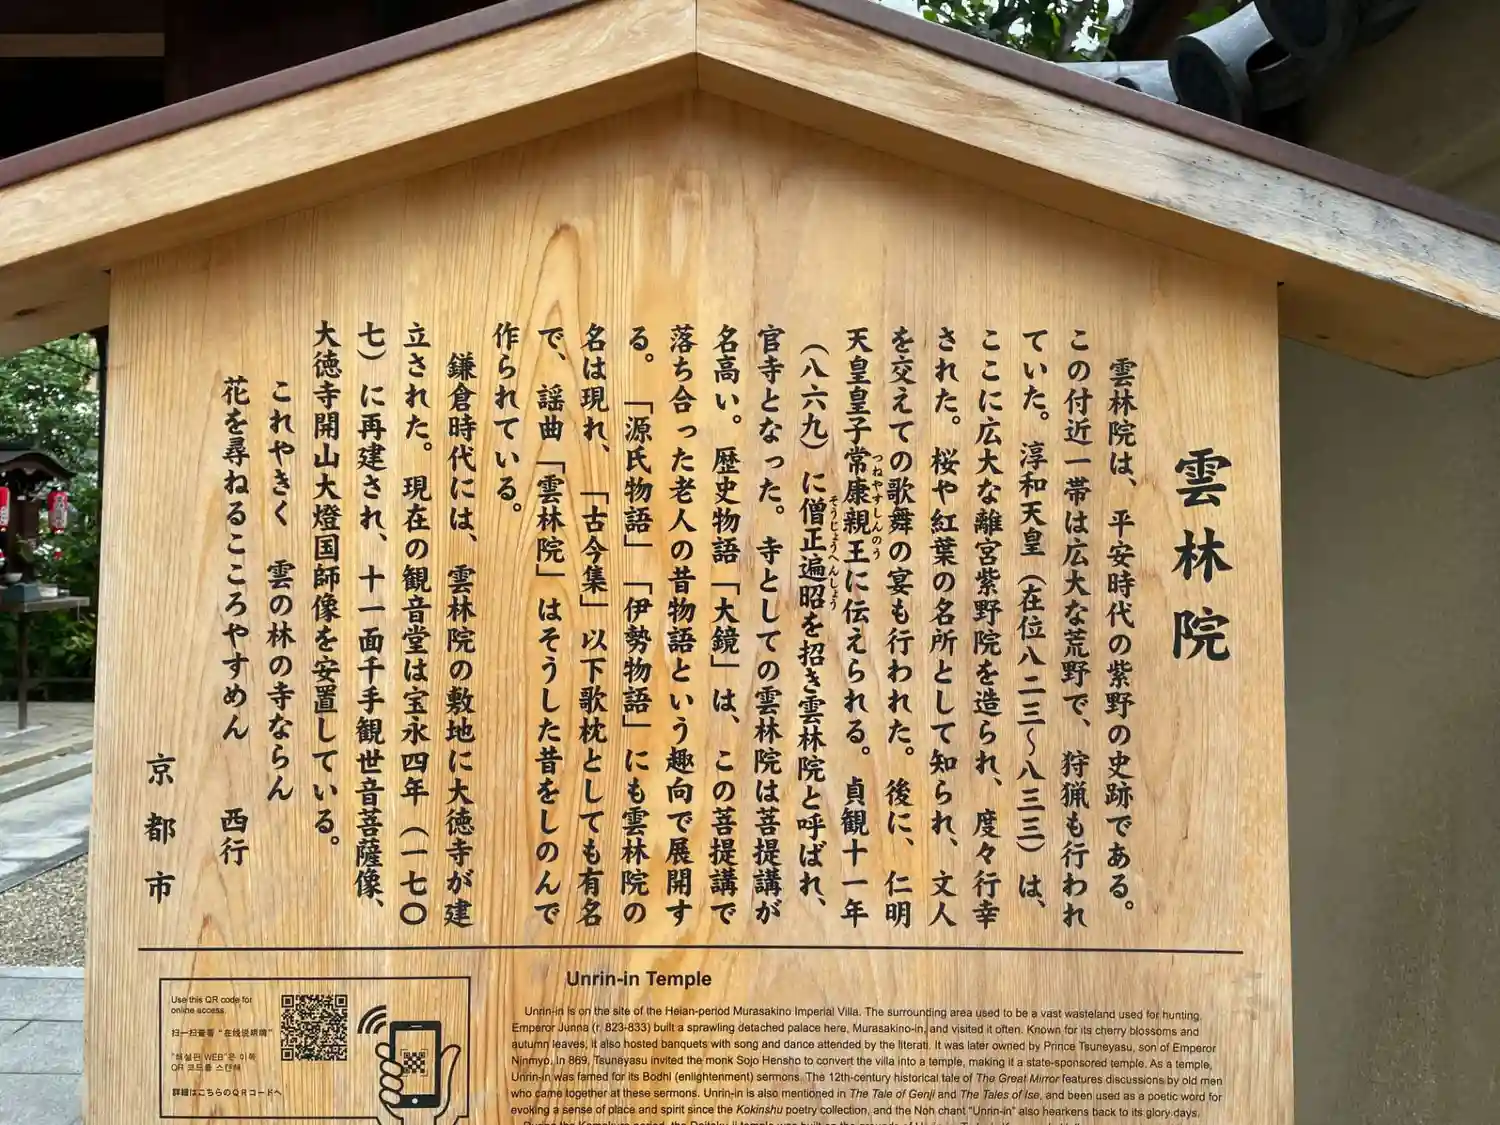 雲林院
雲林院は、平安時代の紫野の史跡である。
この付近一帯は広大な荒野で、狩猟も行われ
ていた。淳和天皇（在位八二三〜八三三）は、
ここに広大な離宮紫野院を造られ、度々行幸
された。桜や紅葉の名所として知られ、文人
を交えての歌舞の宴も行われた。後に、仁明
天皇皇子常康親王に伝えられる。貞観十一年
つねやすしんのう
（八六九）に僧正遍昭を招き雲林院と呼ばれ、
そうじょうへんしょう
官寺となった。寺としての雲林院は菩提講が
名高い。歴史物語「大鏡」は、この菩提講で
落ち合った老人の昔物語という趣向で展開す
る。「源氏物語」「伊勢物語」にも雲林院の
名は現れ、「古今集」以下歌枕としても有名
で、謡曲「雲林院」はそうした昔をしのんで
作られている。
鎌倉時代には、雲林院の敷地に大徳寺が建
立された。現在の観音堂は宝永四年（一七〇
七）に再建され、十一面千手観世音菩薩像、
大徳寺開山大燈国師像を安置している。
これやきく　雲の林の寺ならん
花を尋ねるこころやすめん　西行
京都市
Use this QR code for
online access.
扫一扫查看“在线说明牌”
"해설판 WEB"은 이쪽
QR 코드를 스캔해
詳細はこちらのQRコードへ
Unrin-in Temple
Unrin-in is on the site of the Heian-period Murasakino Imperial Villa. The surrounding area used to be a vast wasteland used for hunting.
Emperor Junna (r. 823-833) built a sprawling detached palace here, Murasakino-in, and visited it often. Known for its cherry blossoms and
autumn leaves, it also hosted banquets with song and dance attended by the literati. It was later owned by Prince Tsuneyasu, son of Emperor
Ninmyo. In 869, Tsuneyasu invited the monk Sojo Hensho to convert the villa into a temple, making it a state-sponsored temple. As a temple,
Unrin-in was famed for its Bodhi (enlightenment) sermons. The 12th-century historical tale of The Great Mirror features discussions by old men
who came together at these sermons. Unrin-in is also mentioned in The Tale of Genji and The Tales of Ise, and been used as a poetic word for
evoking a sense of place and spirit since the Kokinshu poetry collection, and the Noh chant "Unrin-in" also hearkens back to its glory days.